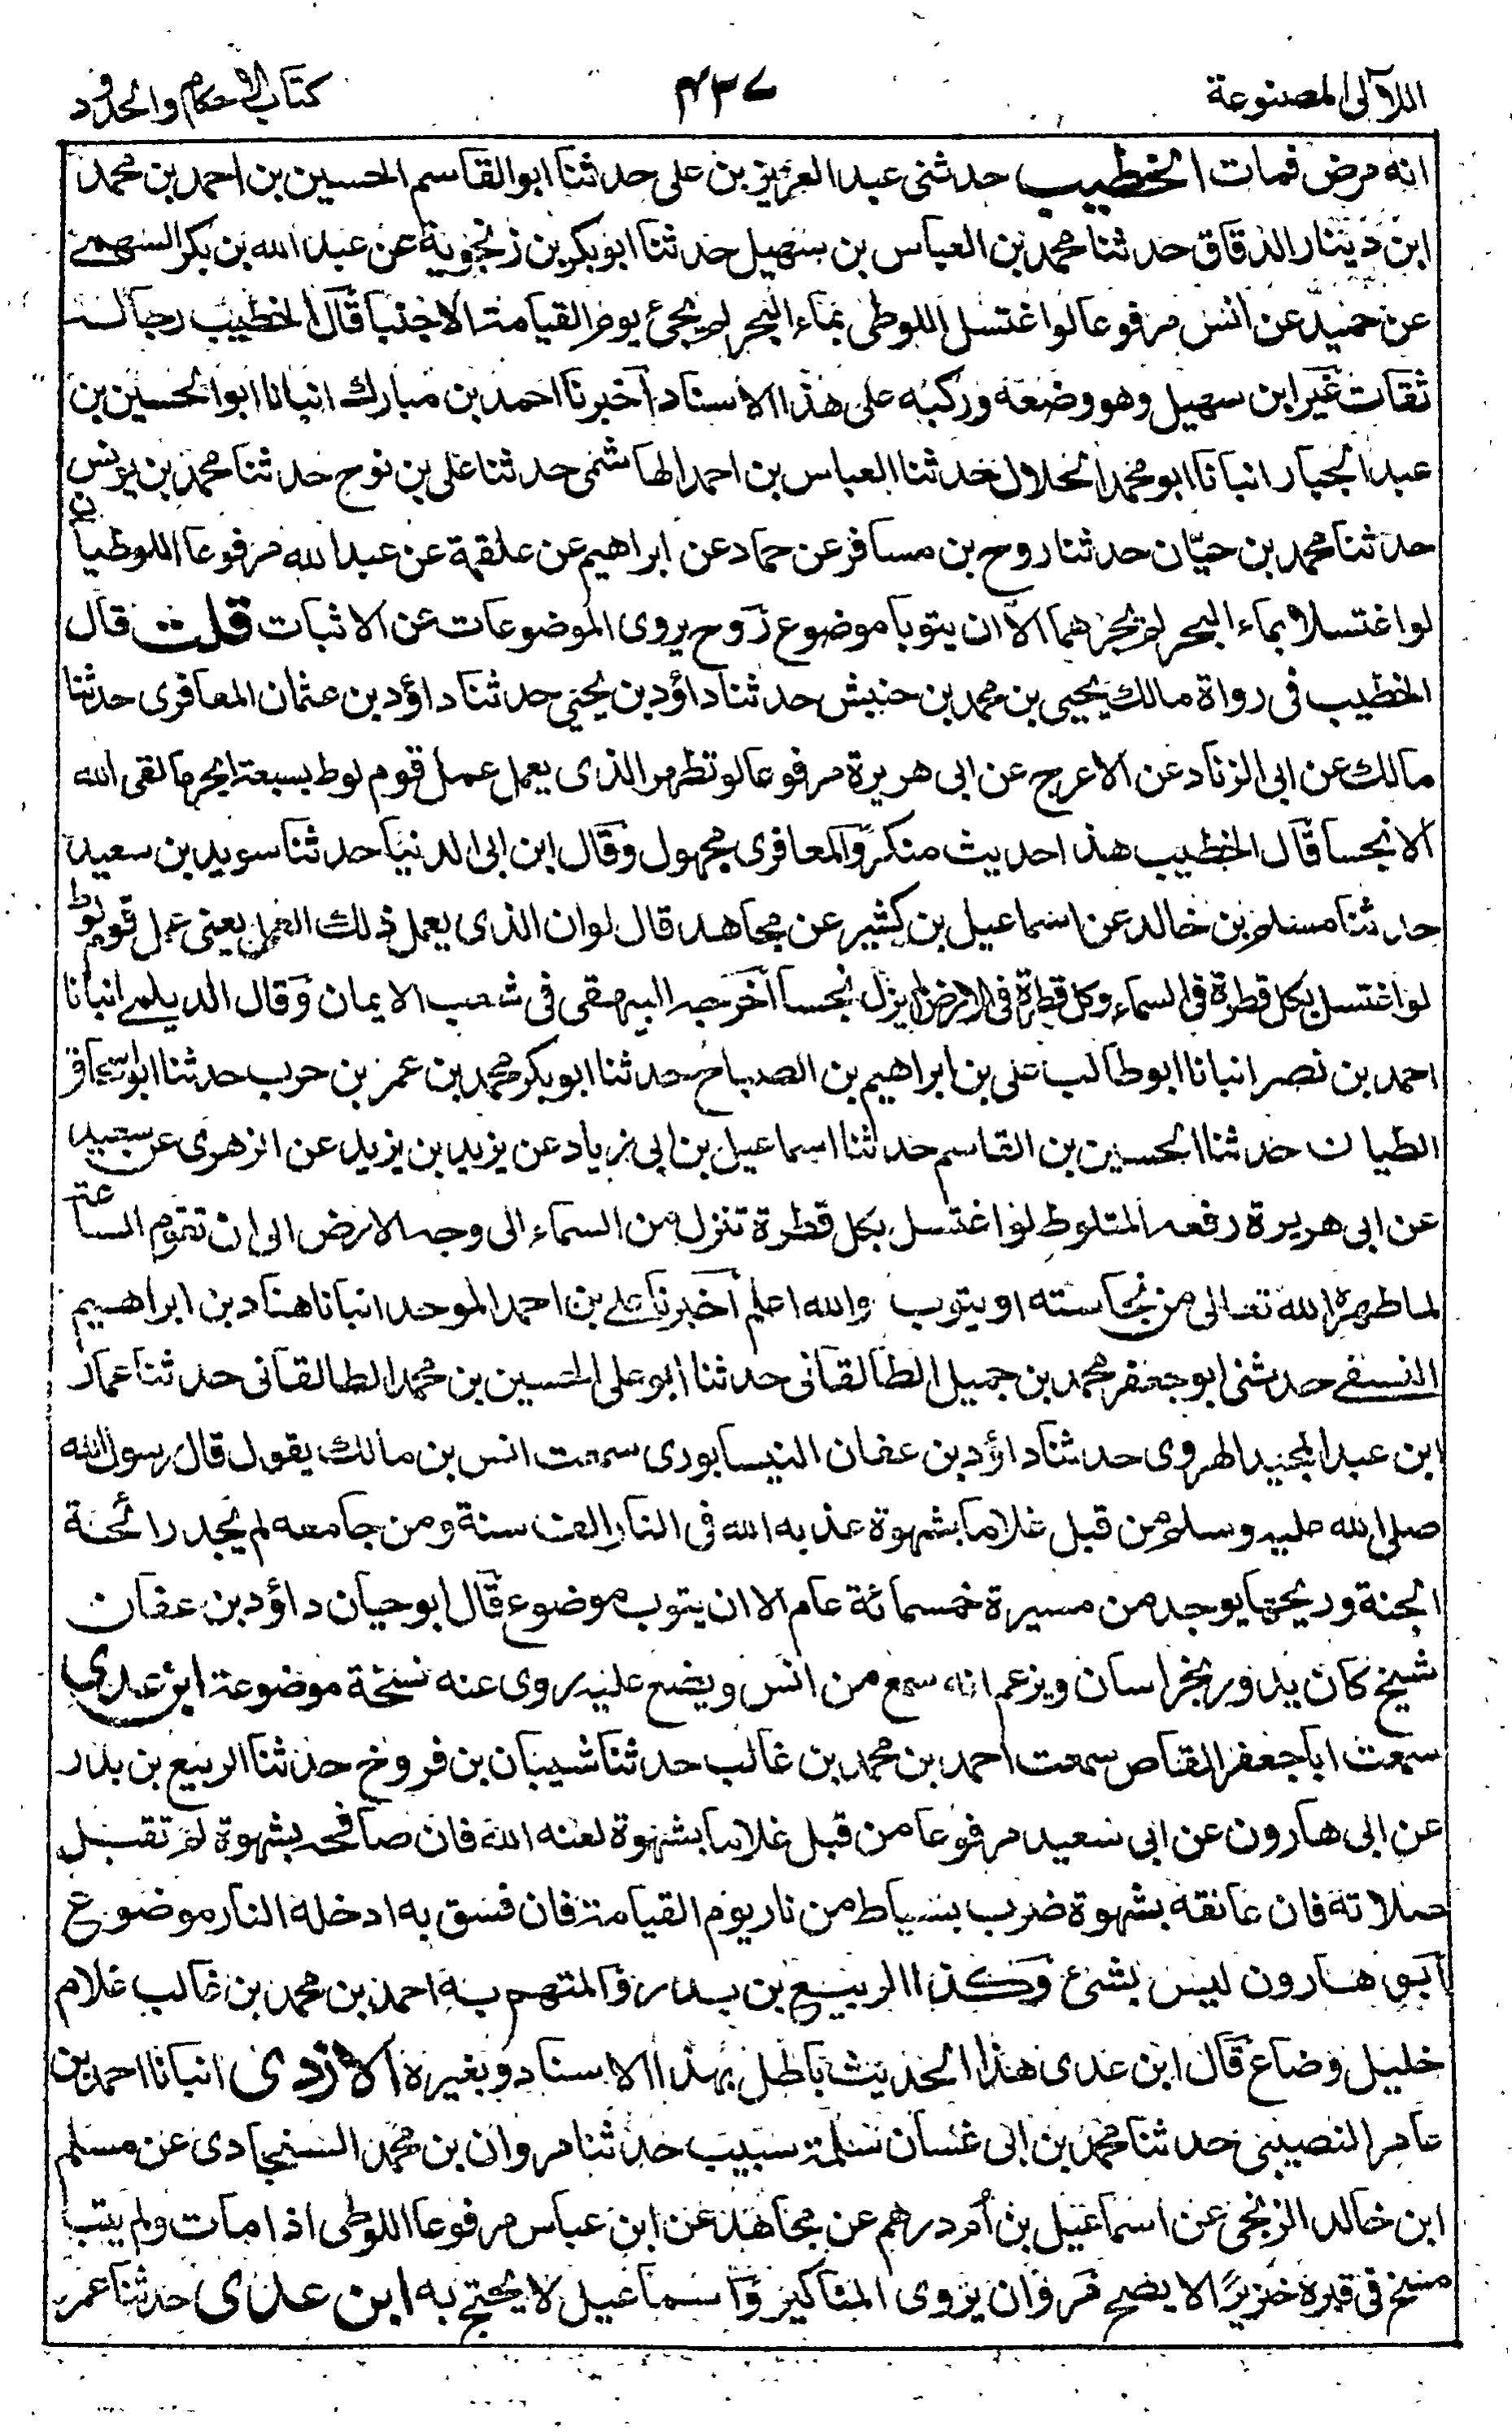 اللآلی المصنوعة
۴۳۷
کتاب الاحکام والحدود
انه مرض فمات الخطیب حدثنی عبد العزیز بن علی حدثنا ابو القاسم الحسین بن احمد بن محمد
ابن دینار الدقاق حدثنا محمد بن العباس بن سهیل حدثنا ابو بکر بن زنجویة عن عبد الله بن بکر السهمے
عن حمید عن انس مرفوعا لو اغتسل اللوطی بماء البحر لم یجئ یوم القیامة الا جنبا قال الخطیب رجاله
ثقات غیر ابن سهیل وهو وضعه ورکبه علی هذا الاسناد اخبرنا احمد بن مبارك انبانا ابو الحسین بن
عبد الجبار انبانا ابو محمد الخلال حدثنا العباس بن احمد الهاشمی حدثنا علی بن نوح حدثنا محمد بن یونس
حدثنا محمد بن حیّان حدثنا روح بن مسافر عن حماد عن ابراهیم عن علقمة عن عبد الله مرفوعا اللوطیان
لو اغتسلا بماء البحر لم یجزهما الا ان یتوبا موضوع روح یروی الموضوعات عن الاثبات قلت قال
الخطیب فی رواة مالك یحیی بن محمد بن حنبش حدثنا داؤد بن یحیی حدثنا داؤد بن عثمان المعافری حدثنا
مالك عن ابی الزناد عن الاعرج عن ابی هریرة مرفوعا لو تطهر الذی یعمل عمل قوم لوط بسبعة ابحر ما لقی الله
الا نجسا قال الخطیب هذا حدیث منکر والمعافری مجهول وقال ابن ابی الدنیا حدثنا سوید بن سعید
حدثنا مسلم بن خالد عن اسماعیل بن کثیر عن مجاهد قال لو ان الذی یعمل ذلك العمل یعنی عمل قوم لوط
لو اغتسل بکل قطرة فی السماء وکل قطرة فی الارض لم یزل نجسا اخرجه البیهقی فی شعب الایمان وقال الدیلمے انبانا
احمد بن نصر انبانا ابو طالب علی بن ابراهیم بن الصباح حدثنا ابو بکر محمد بن عمر بن حرب حدثنا ابو اسحاق
الطیان حدثنا الحسین بن القاسم حدثنا اسماعیل بن ابی زیاد عن یزید بن یزید عن الزهری عن سعید
عن ابی هریرة رفعه المتلوط لو اغتسل بکل قطرة تنزل من السماء الی وجه الارض الی ان تقوم الساعة
لما طهره الله تعالی من نجاسته او یتوب والله اعلم اخبرنا علے بن احمد الموحد انبانا هناد بن ابراهیم
النسفے حدثنی ابو جعفر محمد بن جمیل الطالقانی حدثنا ابو علی الحسین بن محمد الطالقانی حدثنا عمار
ابن عبد المجید الهروی حدثنا داؤد بن عفان النیسابوری سمعت انس بن مالك یقول قال رسول الله
صلی الله علیه وسلم من قبل غلاما بشهوة عذبه الله فی النار الف سنة ومن جامعه لم یجد رائحة
الجنة وریحها یوجد من مسیرة خمسمائة عام الا ان یتوب موضوع قال ابو حیان داؤد بن عفان
شیخ کان یدور بخراسان ویزعم انه سمع من انس ویضع علیه روی عنه نسخة موضوعة ابن عدی
سمعت ابا جعفر القناص سمعت احمد بن محمد بن غالب حدثنا شیبان بن فروخ حدثنا الربیع بن بدر
عن ابی هارون عن ابی سعید مرفوعا من قبل غلاما بشهوة لعنه الله فان صافحه بشهوة لم تقبل
صلاته فان عانقه بشهوة ضرب بسیاط من نار یوم القیامة فان فسق به ادخله النار موضوع
ابو هارون لیس بشئ وکذا الربیع بن بدر والمتهم به احمد بن محمد بن غالب غلام
خلیل وضاع قال ابن عدی هذا الحدیث باطل بهذا الاسناد وبغیره الازدی انبانا احمد بن
عامر النصیبی حدثنا محمد بن ابی غسان سلمة سبیب حدثنا مروان بن محمد السنجادی عن مسلم
ابن خالد الزنجی عن اسماعیل بن أم درهم عن مجاهد عن ابن عباس مرفوعا اللوطی اذا مات ولم یتب
مسخ فی قبره خنزیرًا لا یصح مروان یروی المناکیر واسماعیل لا یحتج به ابن عدی حدثنا عمر